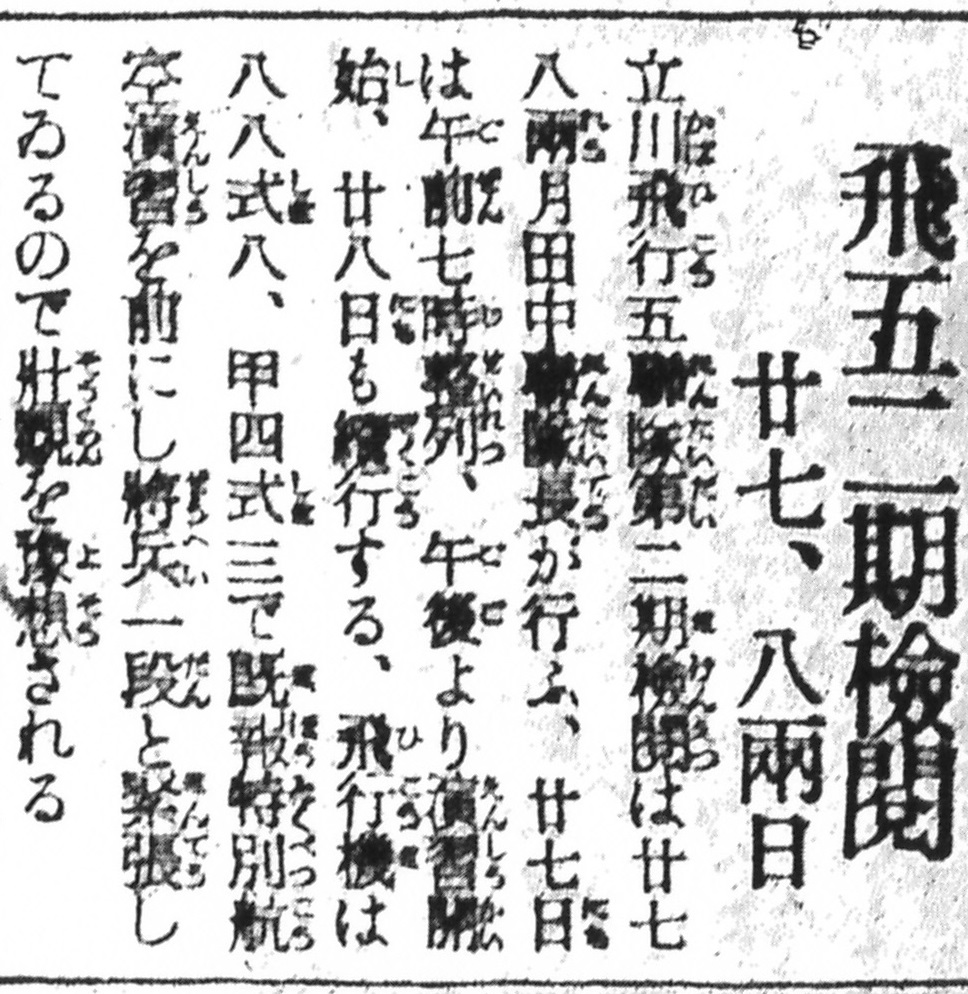 飛五二期檢閲
廿七、八兩日
立川飛行五聯隊第二期檢閲は廿七
八兩月田中聯隊長が行ふ、廿七日
は午前七時整列、午後より演習開
始、廿八日も續行する、飛行機は
八八式八、甲四式三で既報特別航
空演習を前にし將兵一段と緊張し
てゐるので壯觀を豫想される